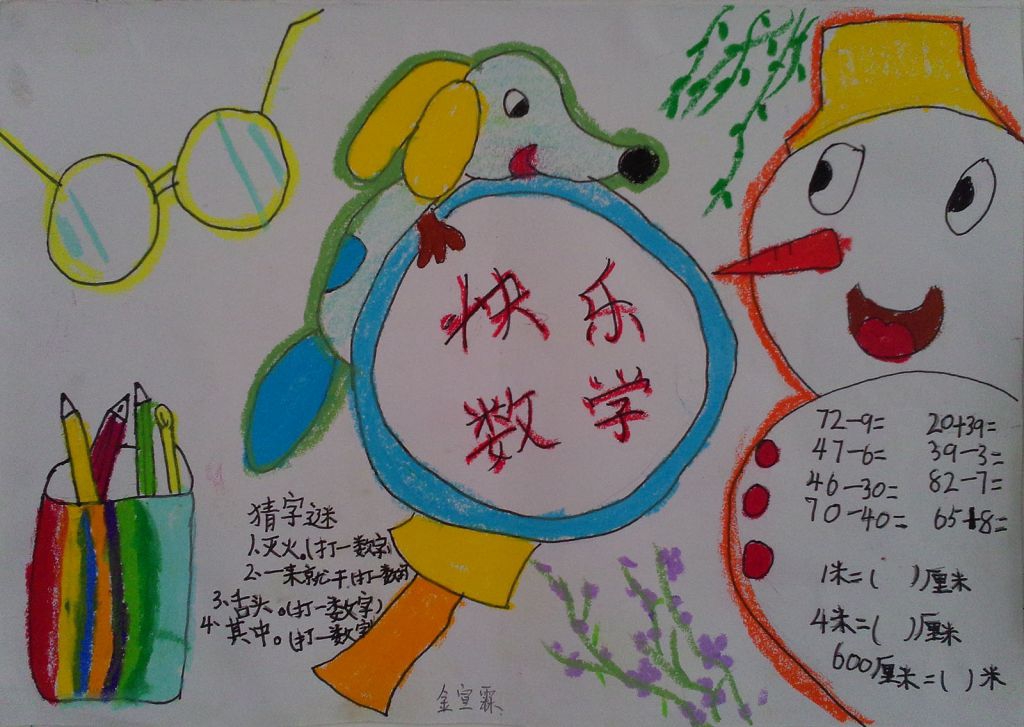 快乐
数学
72-9= 20+39=
47-6= 39-3=
46-30= 82-7=
70-40= 65+8=
1米=( )厘米
4米=( )厘米
600厘米=( )米
猜字谜
1.灭火。(打一数字)
2.一来就千(打一数字)
3、舌头。(打一数字)
4.其中。(打一数字)
金宣霖